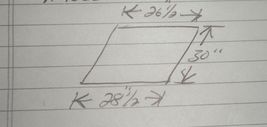 26 1/2
30"
28 1/2"